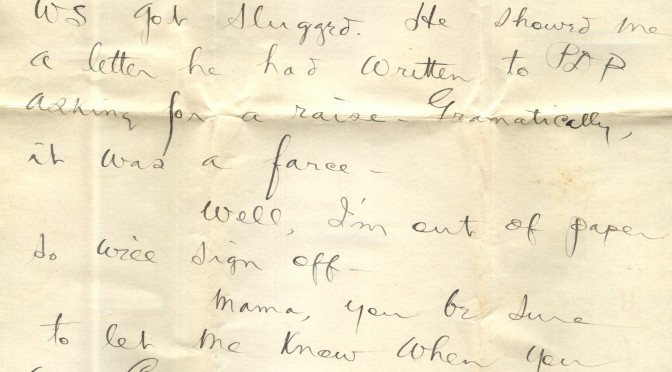 WS got slugged. He showed me
a letter he had written to PDP
asking for a raise. Gramatically,
it was a farce -
Well, I'm out of paper
so will sign off -
Mama, you be sure
to let me know when you